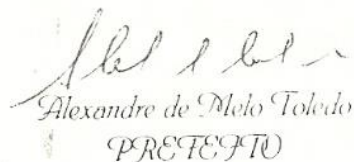 Alexandre de Melo Toledo
PREFEITO